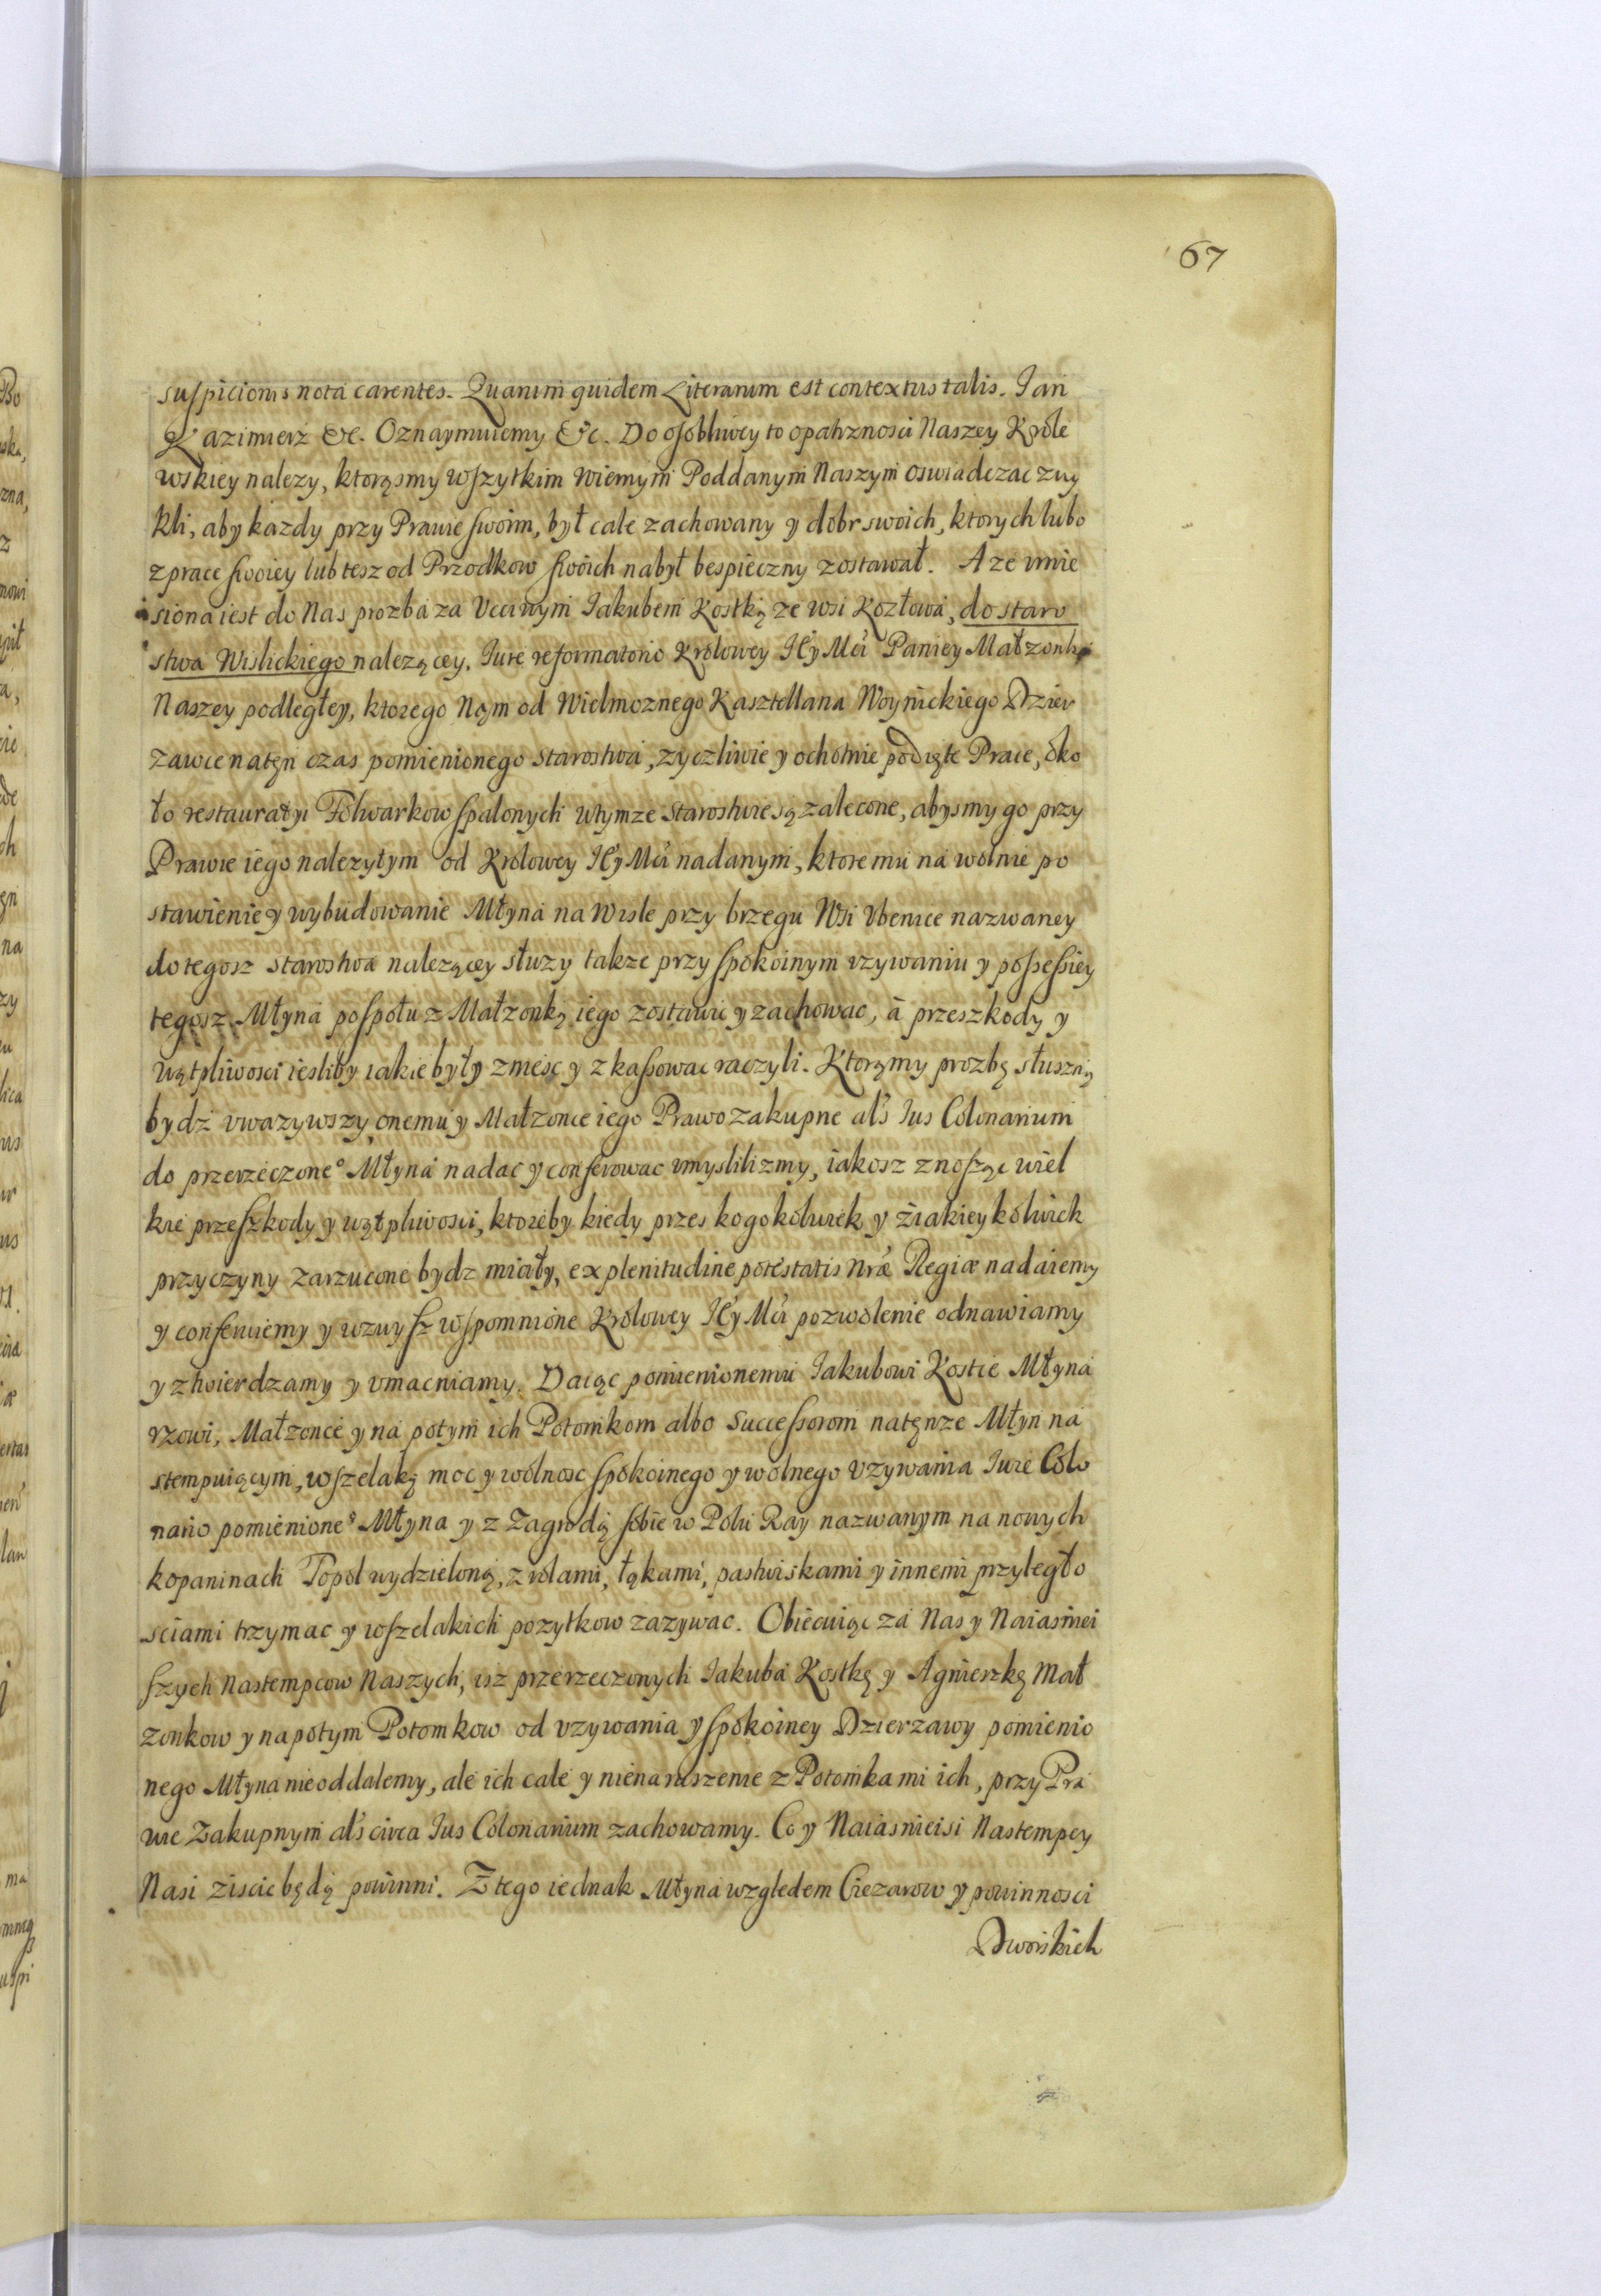 67
suspicionis nota carentes. Quarum quidem Literarum est contextus talis. Jan
Kazimierz &c. Oznaymuiemy &c. Do osobliwey to opatrznosci Naszey Krole
wskiey nalezy, ktorąsmy wszytkim wiernym Poddanym Naszym oswiadczac zwy
kli, aby kazdy przy Prawie swoim, był cale zachowany y dobr swoich, ktorych lubo
z prace swoiey lub tesz od Przodkow swoich nabył bespieczny zostawał. A ze wnie
siona iest do Nas prozba za Uczciwym Jakubem Kostką ze wsi Kozłowa, do staro
stwa Wislickiego nalezącey, Jure reformatorio Krolowey Jey Mći Paniey Małzonki
Naszey podległey, ktorego Nąm od Wielmoznego Kasztellana Woynickiego Dzier
zawce natęn czas pomienionego starostwa, zyczliwie y ochotnie podięte Prace, oko
ło restauratyi Folwarkow spalonych wtymze starostwie są zalecone, abysmy go przy
Prawie iego nalezytym od Krolowey Jey Mći nadanym, ktore mu na wolnie po
stawienie y wybudowanie Młyna na Wisle przy brzegu Wsi Ubenice nazwaney
do tegosz starostwa nalezącey słuzy takze przy spokoinym uzywaniu y possessiey
tegosz Młyna pospołu z Małzonką iego zostawic y zachowac, à przeszkody y
wątpliwosci iesliby iakie były zniesc y zkassowac raczyli. Ktorąmy prozbę słuszną
bydz uwazywszy onemu y Małzonce iego Prawo zakupne als Jus Colonarium
do przerzeczone° Młyna nadac y conferowac umyslilizmy, iakosz znosząc wiel
kie przeszkody y wątpliwosci, ktoreby kiedy przes kogokolwiek y ziakieykolwiek
przyczyny zarzucone bydz miały, ex plenitudine potestatis nræ Regiæ nadaiemy
y conferuiemy y wzwysz wspomnione Krolowey Jey Mći pozwolenie odnawiamy
y ztwierdzamy y umacniamy. Daiąc pomienionemu Jakubowi Kostce Młyna
rzowi, Małzonce y na potym ich Potomkom albo Successorom natęnze Młyn na
stempuiącym, wszelaką moc y wolnosc spokoinego y wolnego uzywania Jure Colo
nario pomienione° Młyna y z Zagrodą sobie w Polu Ray nazwanym na nowych
kopaninach Topol wydzieloną, z rolami, łąkami, pastwiskami y innemi przyległo
sciami trzymac y wszelakich pozytkow zazywac. Obiecuiąc za Nas y Naiasniei
szych Nastempcow Naszych, isz przerzeczonych Jakuba Kostkę y Agnieszkę Mał
zonkow y napotym Potomkow od uzywania y spokoiney Dzierzawy pomienio
nego Młyna nie oddalemy, ale ich cale y nienaruszenie z Potomkami ich, przy Pra
wie Zakupnym als circa Jus Colonarium zachowamy. Co y Naiasnieisi Nastempcy
Nasi ziscic będą powinni. Z tego iednak Młyna względem Ciezarow y powinnosci
Dworskich